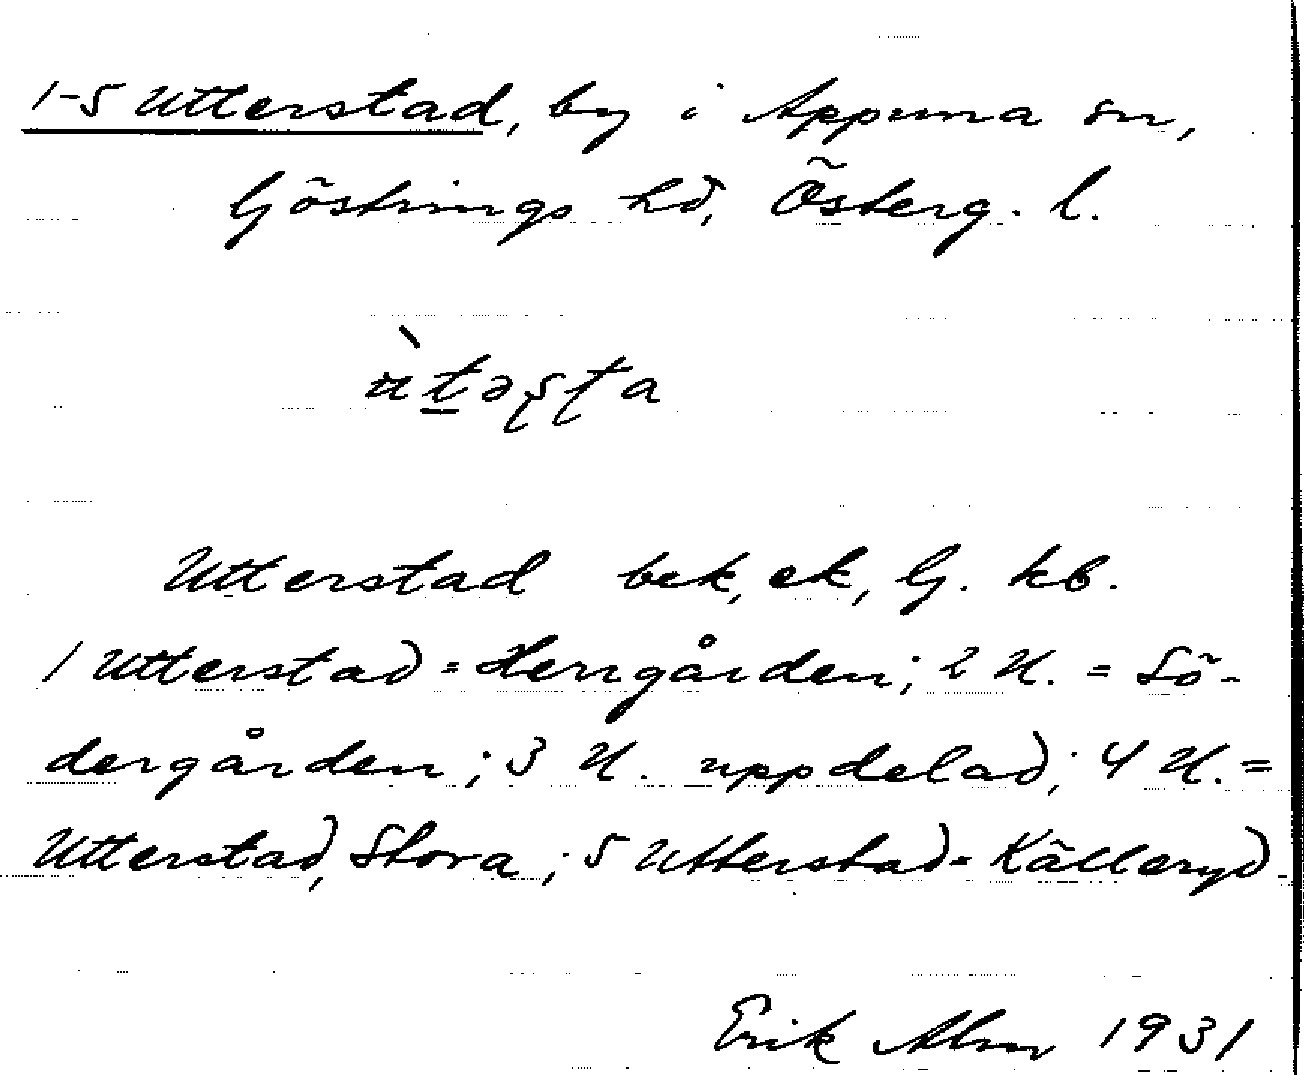 1-5 Utterstad, by i Appuna sn,
Göstrings hd, Österg. l.
Utterstad bek, ek, G. kb.
1 Utterstad = Herrgården; 2 U. = Sö-
dergården; 3 U. uppdelad; 4 U. =
Utterstad, Stora; 5 Utterstad = Källeryd.
Erik Alm 1931